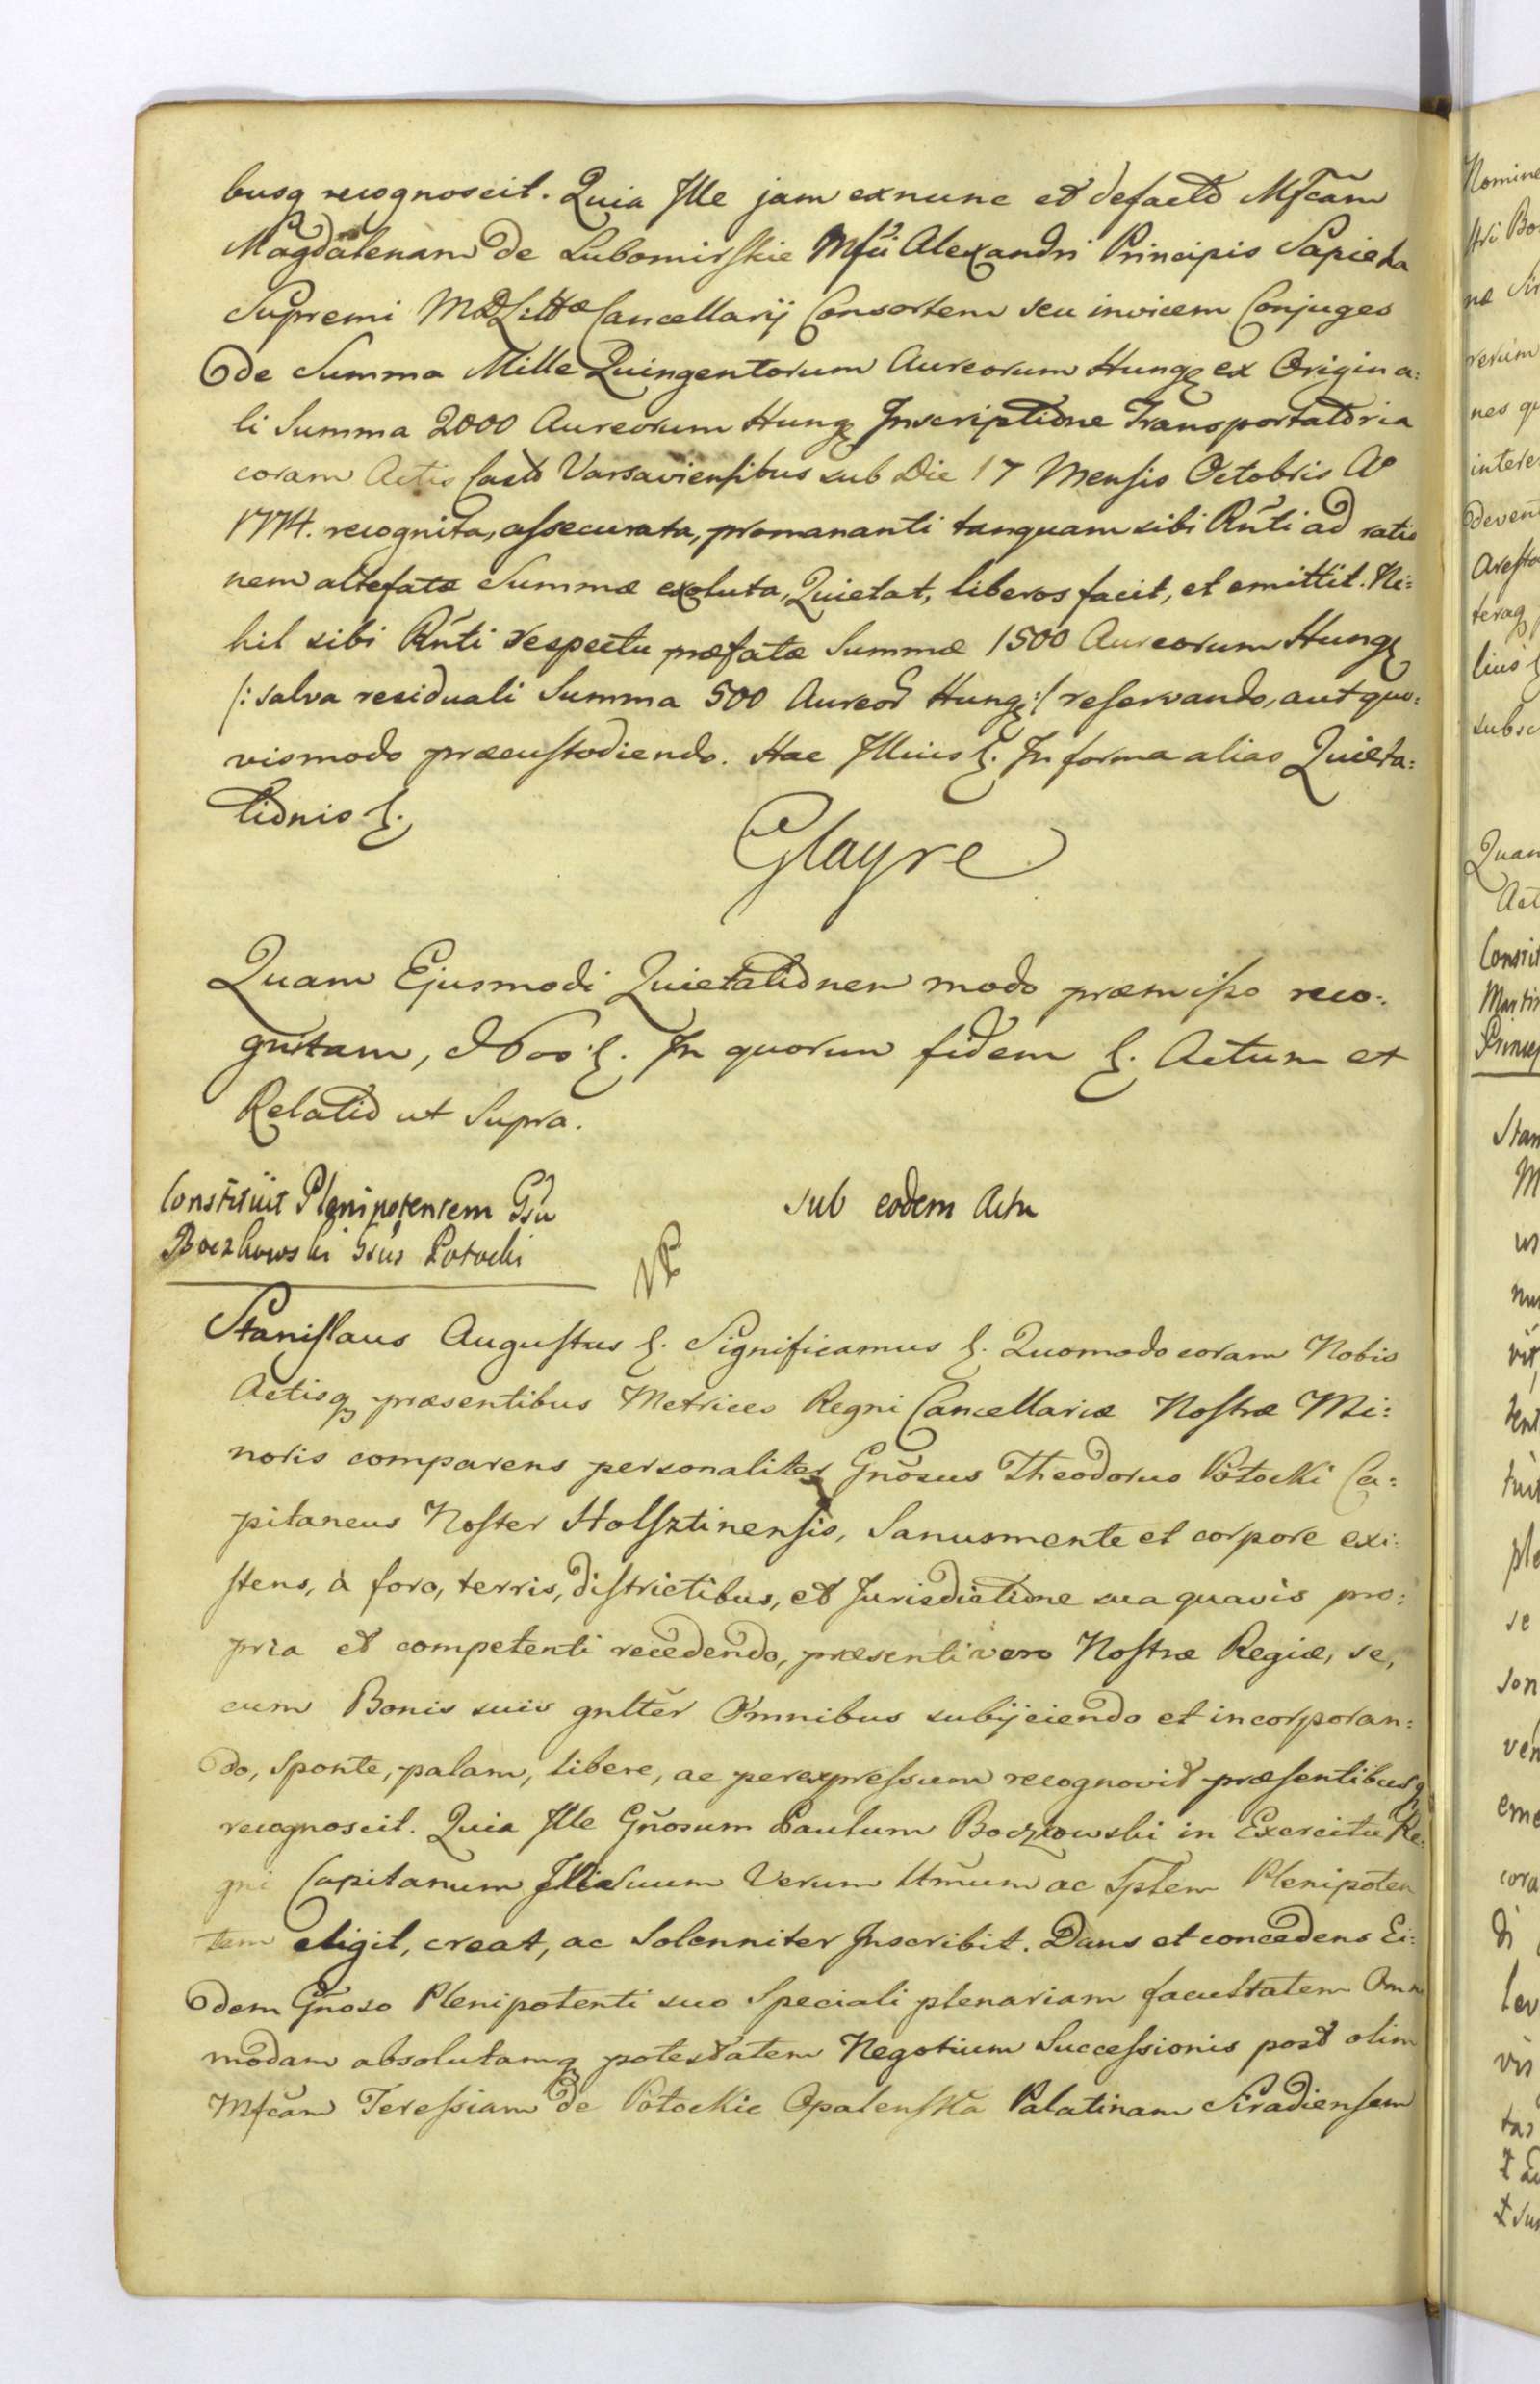 busq recognoscit. Quia Ille jam exnunc et defacto Mfcam
Magdalenam de Lubomirskie Mfci Alexandri Principis Sapieha
Supremi M.D.Littæ Cancellarij Consortem seu invicem Conjuges
de Summa Mille Quingentorum Aureorum Hungq ex Origina:
li Summa 2000 Aureorum Hungq Inscriptione Transportatoria
coram Actis Castr Varsaviensibus sub Die 17 Mensis Octobris Ao
1774. recognita, assecurata, promananti tanquam sibi Rnti ad ratio
nem altefatæ Summæ exoluta, Quietat, liberos facit, et emittit. Ni:
hil sibi Rnti respectu præfatæ Summæ 1500 Aureorum Hungq
/: salva residuali Summa 500 Aureor Hungq :/ reservando, aut quo:
vismodo præcustodiendo. Hac Illius &. In forma alias Quieta:
tionis &.
Glayre
Quam Ejusmodi Quietationem modo præmisso reco:
gnitam, Nos &. In quorum fidem &. Actum et
Relatio ut Supra.
Constituit Plenipotentem Gsu
Boczkowski Gsus Potocki
sub eodem Actu
Stanislaus Augustus &. Significamus &. Quomodo coram Nobis
Actisq præsentibus Metrices Regni Cancellariæ Nostræ Mi:
noris comparens personaliter Gnosus Theodorus Potocki Ca:
pitaneus Noster Holsztinensis, Sanus mente et corpore exi:
stens, à foro, terris, districtibus, et Jurisdictione sua quavis pro:
pria et competenti recedendo, præsenti vero Nostræ Regiæ, se,
cum Bonis suis gnlter Omnibus subijciendo et incorporan:
do, Sponte, palam, libere, ac per expressum recognovit præsentibusq
recognoscit. Quia Ille Gnosum Paulum Boczkowski in Exercitu Re:
gni Capitanum Suum Verum Ltmum ac Splem Plenipoten
tem eligit, creat, ac Solenniter Inscribit. Dans et concedens Ei:
dem Gnoso Plenipotenti suo Speciali plenariam facultatem Omni
modam absolutamq potestatem Negotium Successionis post olim
Mfcam Teressiam de Potockie Opalenska Palatinam Siradiensem